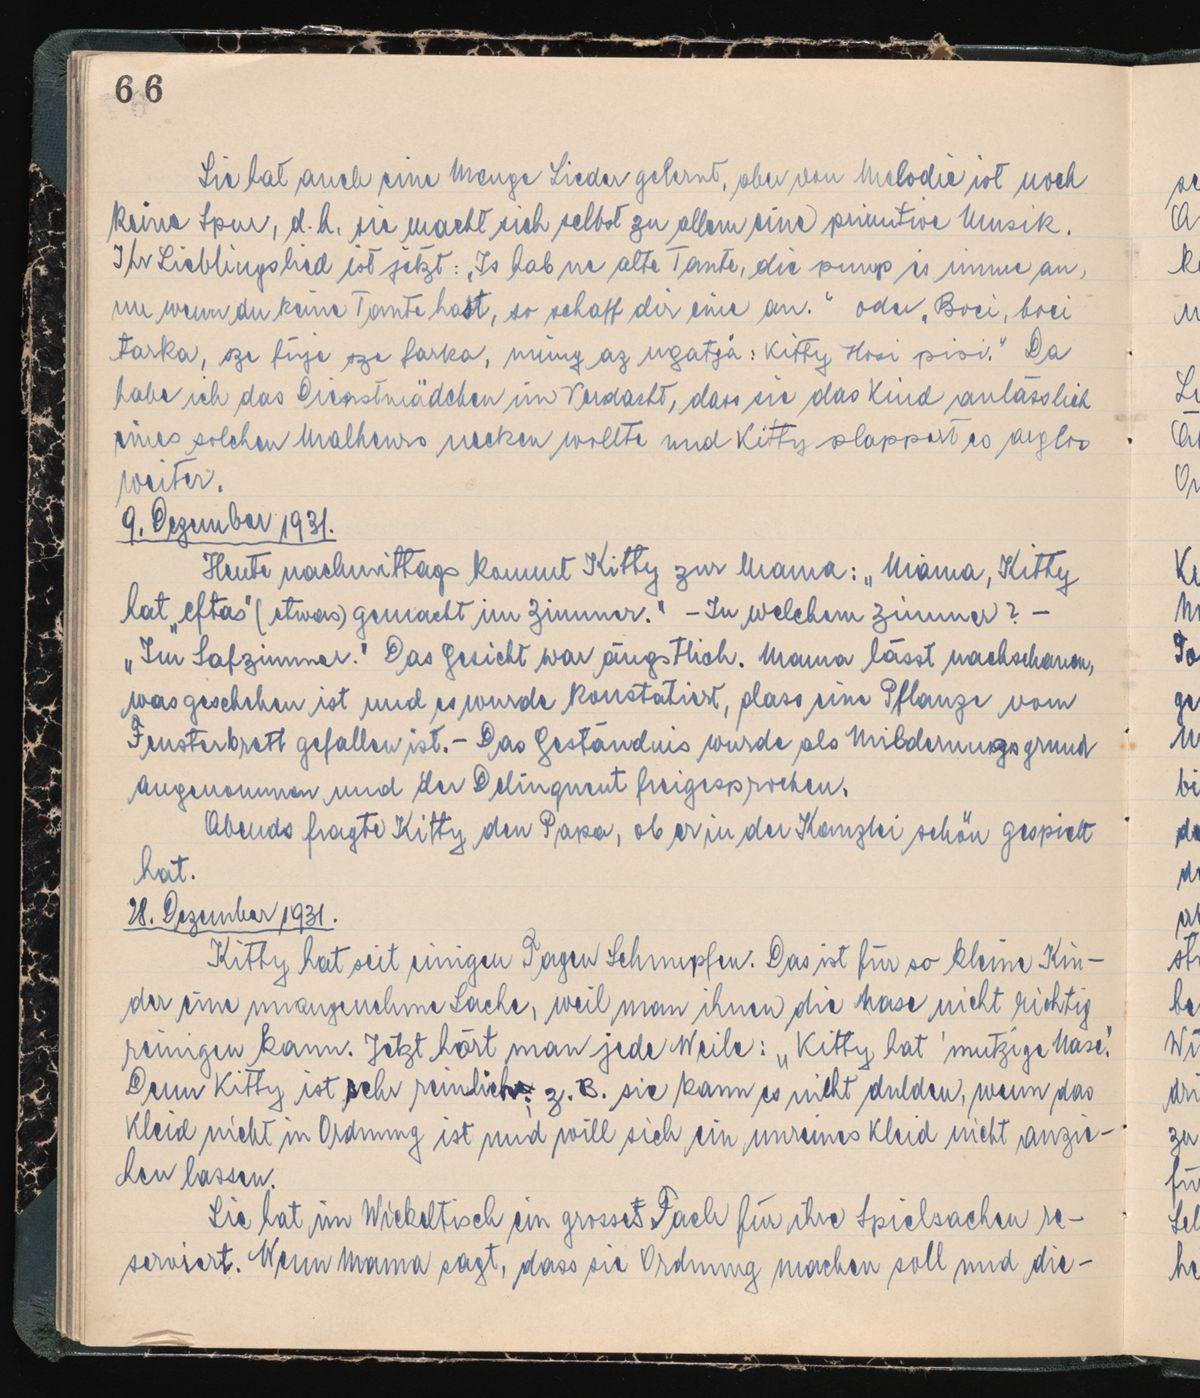 66
Sie hat auch eine Menge Lieder gelernt, aber von Melodie ist noch
keine Spur, d.h. sie macht sich selbst zu allem eine primitive Musik.
Ihr Lieblingslied ist jetzt: „Is hab ne alte Tante, die pump is imme an,
un wenn du keine Tante hast, so schaff dir eine an.“ oder „Boci, boci
tarka, sze füje sze farka, ming az ugatjá: Kitty Hosi pisi.“ Da
habe ich das Dienstmädchen im Verdacht, dass sie das Kind anlässlich
eines solchen Malheurs necken wollte und Kitty plappert es arglos
weiter.
9. Dezember 1931.
Heute nachmittags kommt Kitty zur Mama: „Mama, Kitty
hat „eftas“ (etwas) gemacht im Zimmer.“ – In welchem Zimmer? –
„Im Safzimmer.“ Das Gesicht war ängstlich. Mama lässt nachschauen,
was geschehen ist und es wurde konstatiert, dass eine Pflanze vom
Fensterbrett gefallen ist. – Das Geständnis wurde als Milderungsgrund
angenommen und der Delinquent freigesprochen.
Abends fragte Kitty den Papa, ob er in der Kanzlei schön gespielt
hat.
28. Dezember 1931.
Kitty hat seit einigen Tagen Schnupfen. Das ist für so kleine Kin-
der eine unangenehme Sache, weil man ihnen die Nase nicht richtig
reinigen kann. Jetzt hört man jede Weile: „Kitty hat 'mutzige Nase'.
Denn Kitty ist sehr reinlich; z.B. sie kann es nicht dulden, wenn das
Kleid nicht in Ordnung ist und will sich ein unreines Kleid nicht anzie-
hen lassen.
Sie hat im Wickeltisch ein grosses Fach für ihre Spielsachen re-
serviert. Wenn Mama sagt, dass sie Ordnung machen soll und die-